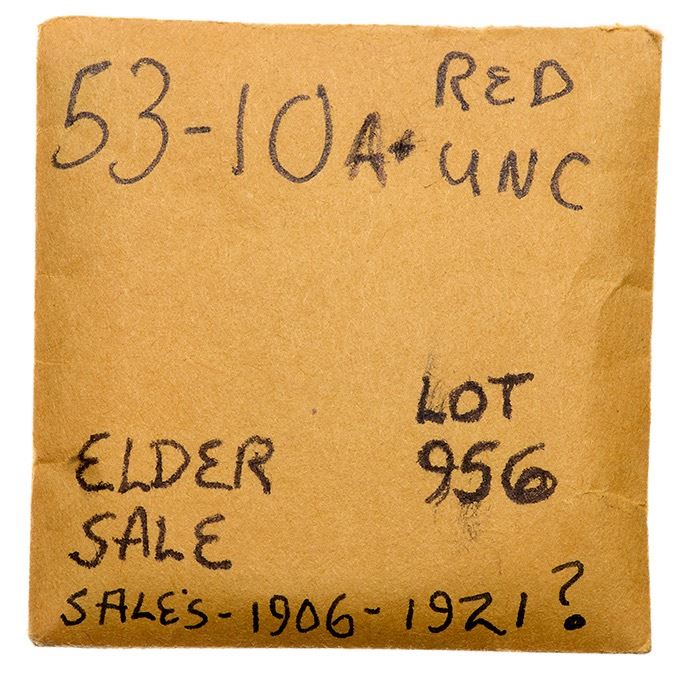 RED
53-10A+ UNC
LOT
956
ELDER
SALE
SALE'S-1906-1921?